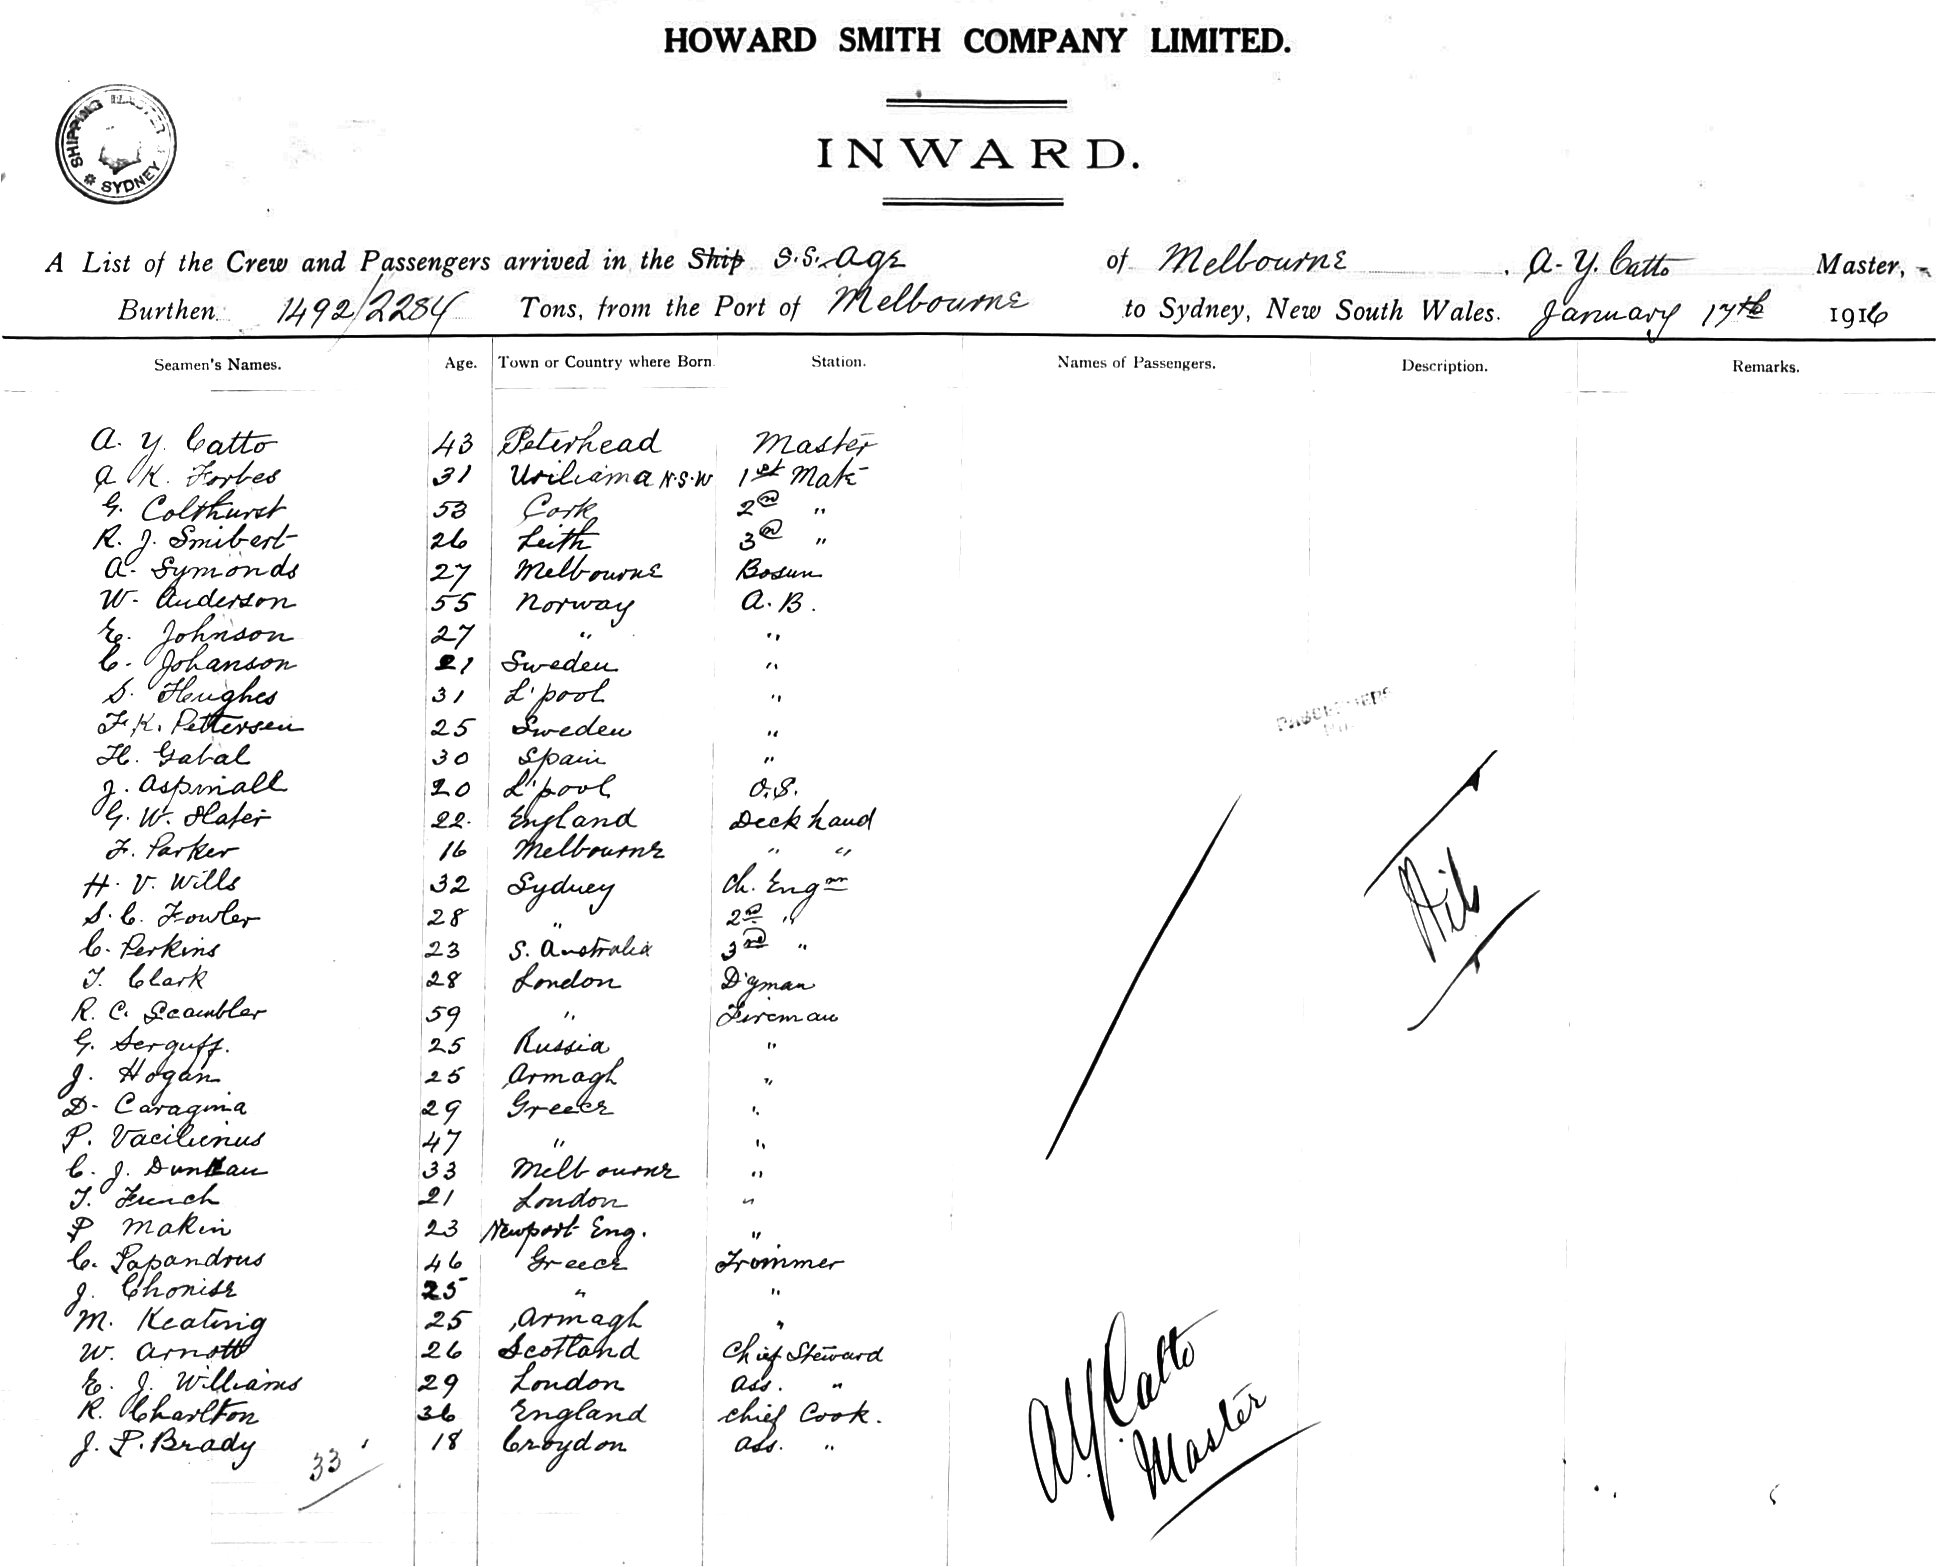 HOWARD SMITH COMPANY LIMITED.
SHIPPING MASTER SYDNEY
INWARD.
A List of the Crew and Passengers arrived in the Ship S.S. Age of Melbourne, A. Y. Catto Master,
Burthen 1492/2284 Tons, from the Port of Melbourne to Sydney, New South Wales. January 17th 1916
Seamen's Names. Age. Town or Country where Born. Station. Names of Passengers. Description. Remarks.
A. Y. Catto 43 Peterhead Master
A K. Forbes 31 Uriliama N.S.W 1st Mate
G. Colthurst 53 Cork 2nd "
R. J. Smibert 26 Leith 3rd "
A. Symonds 27 Melbourne Bosun
W. Anderson 55 Norway A.B.
E. Johnson 27 " "
C. Johanson 21 Sweden "
S. Hughes 31 L'pool "
F. K. Pettersen 25 Sweden "
H. Gabal 30 Spain "
J. Aspinall 20 L'pool O.S.
G. W. Slater 22 England Deck hand
F. Parker 16 Melbourne " "
H. V. Wills 32 Sydney Ch. Engnr
S. C. Fowler 28 " 2nd "
C. Perkins 23 S. Australia 3rd "
T. Clark 28 London D'yman
R. C. Scambler 59 " Fireman
G. Serguff. 25 Russia "
J. Hogan 25 Armagh "
D. Caragina 29 Greece "
P. Vacilinius 47 " "
C. J. Duncan 33 Melbourne "
T. French 21 London "
P Makin 23 Newport Eng. "
C. Papandrus 46 Greece Trimmer
J. Chonise 25 " "
M. Keating 25 Armagh "
W. Arnott 26 Scotland Chief Steward
E. J. Williams 29 London Ass. "
R. Charlton 36 England Chief Cook.
J. P. Brady 18 Croydon Ass. "
33
PASSENGERS
Nil
A Y Catto
Master